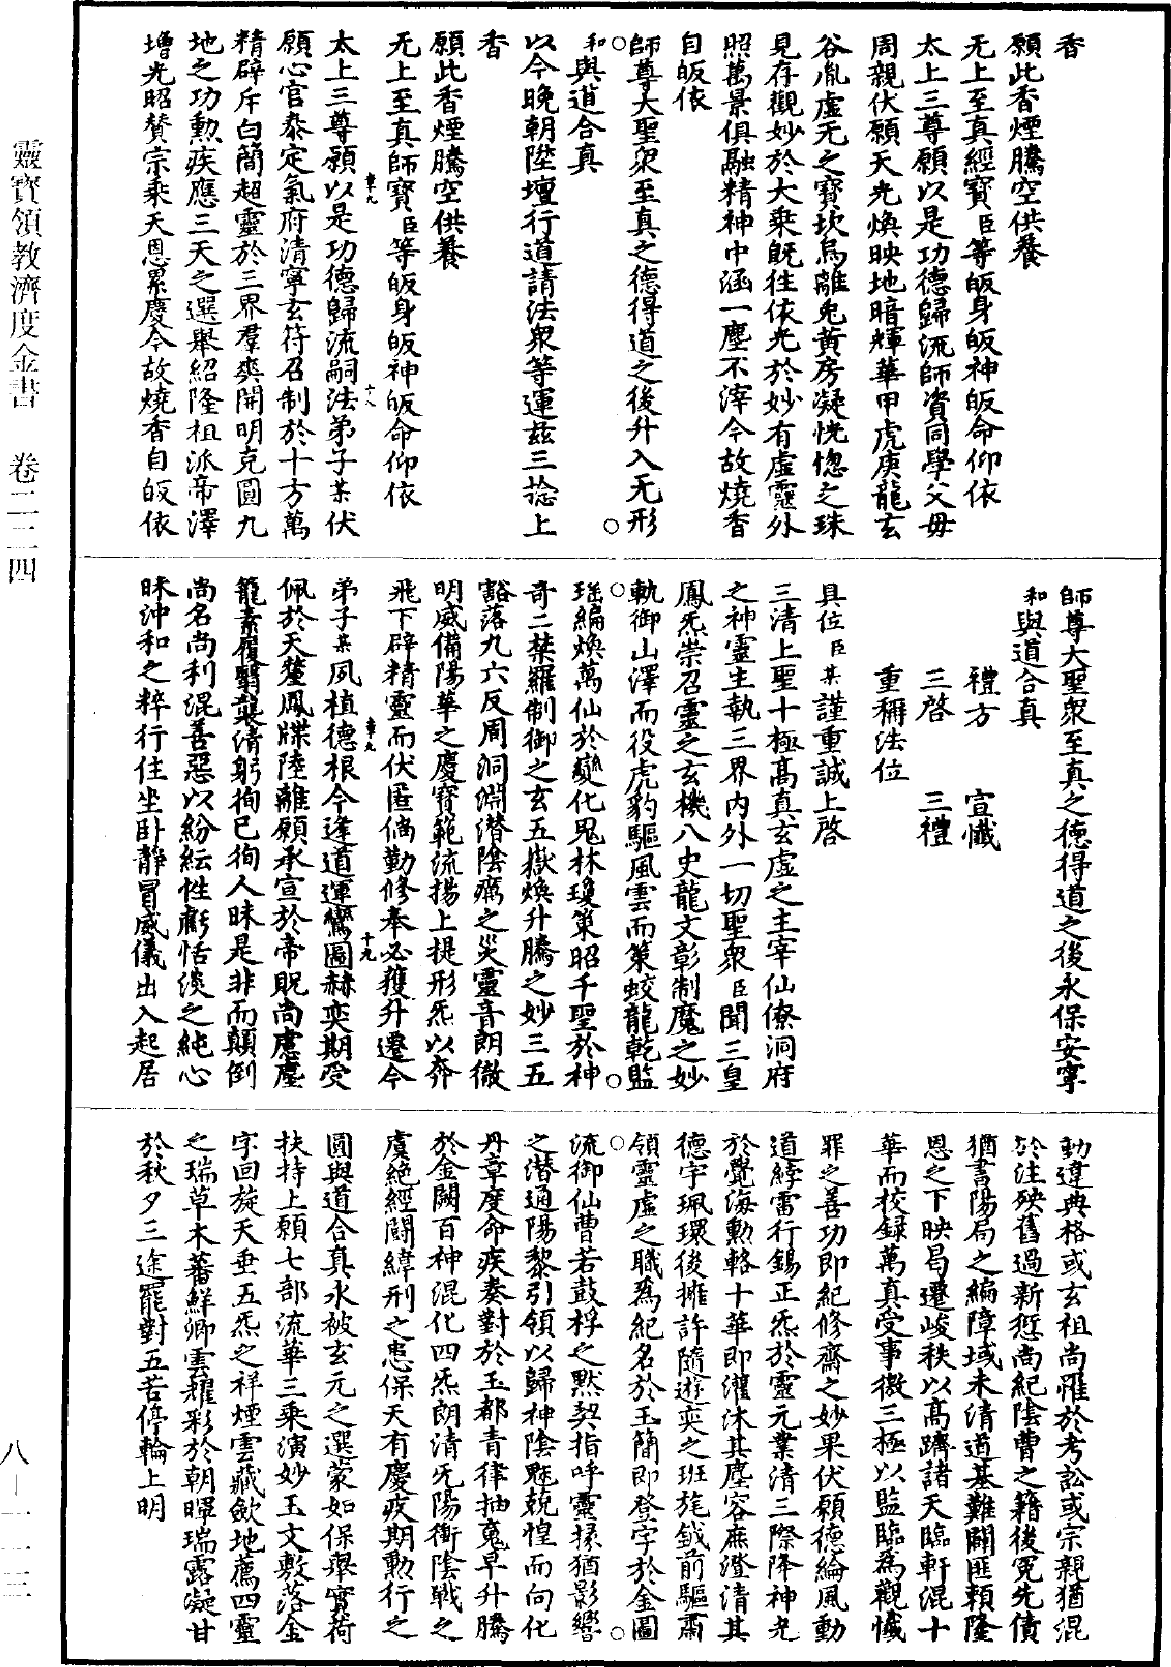 香
願此香煙騰空供養
无上至真經寶臣等皈身皈神皈命仰依
太上三尊願以是功德歸流師資同學父母
周親伏願天光煥映地暗輝華甲虎庚龍玄
谷胤虛无之寶坎烏離兔黃房凝恍惚之珠
見存觀妙於大乘旣往依光於妙有虛靈外
照萬景俱融精神中涵一塵不滓今故燒香
自皈依
師尊大聖衆至真之德得道之後升入无形
和與道合真
以今晚朝陞壇行道請法衆等運兹三捻上
香
願此香煙騰空供養
无上至真師寶臣等皈身皈神皈命仰依
太上三尊願以是功德歸流嗣法弟子某伏
願心官泰定氣府清寧玄符召制於十方萬
精辟斥白簡超靈於三界羣爽開明克圓九
地之功勲疾應三天之選舉紹隆祖派帝澤
增光昭賛宗乘天恩累慶今故燒香自皈依
師尊大聖衆至真之德得道之後永保安寧
和與道合真
禮方 宣懺
三啓 三禮
重稱法位
具位臣某謹重誠上啓
三清上聖十極高真玄虛之主宰仙僚洞府
之神靈生執三界內外一切聖衆臣聞三皇
鳳炁崇召靈之玄機八史龍文彰制魔之妙
軌御山澤而役虎豹驅風雲而策蛟龍乾監
瑶編煥萬仙於變化鬼林瓊策昭千聖於神
奇二禁羅制御之玄五嶽煥升騰之妙三五
豁落九六反周洞淵潜陰癘之災靈音朗徹
明威備陽華之慶寶範流揚上提形炁以奔
飛下辟精靈而伏匿倘勤修奉必獲升遷今
弟子某夙植德根今逢道運鸞圖赫奕期受
佩於天釐鳳牒陸離願承宣於帝貺尚慮塵
籠素履翳襲清躬徇已徇人昧是非而顛倒
尚名尚利混善惡以紛紜性虧恬淡之純心
昧沖和之粹行住坐卧靜冒威儀出入起居
動違典格或玄祖尚罹於考訟或宗親猶混
於注殃舊過新愆尚紀陰曹之籍後寃先債
猶書陽局之編障域未清道基難闢匪頼隆
恩之下映曷遷峻秩以高躋諸天臨軒混十
華而校録萬真受事徹三極以監臨爲觀懺
罪之善功即紀修齋之妙果伏願德綸風動
道綍雷行錫正炁於靈元業清三際降神光
於覺海勲輅十華即灌沐其塵容庶澄清其
德宇珮環後擁許隨遊奕之班旄鉞前驅肅
領靈虛之職爲紀名於玉簡即登字於金圖
流御仙曹若鼓桴之黙契指呼靈掾猶影響
之潜通陽黎引領以歸神陰魅兢惶而向化
丹章度命疾奏對於玉都青律抽寃早升騰
於金闕百神混化四炁朗清无陽衝陰戰之
虞絶經鬪緯刑之患保天有慶疾期勲行之
圓與道合真永被玄元之選蒙如保舉實荷
扶持上願七部流華三乘演妙玉文敷落金
字回旋天垂五炁之祥煙雲藏歛地薦四靈
之瑞草木蕃鮮卿雲耀彩於朝暉瑞露凝甘
於秋夕三途罷對五苦停輪上明
章九
十八
章九
十九
靈寶領教濟度金書 卷二三四
八—一一三